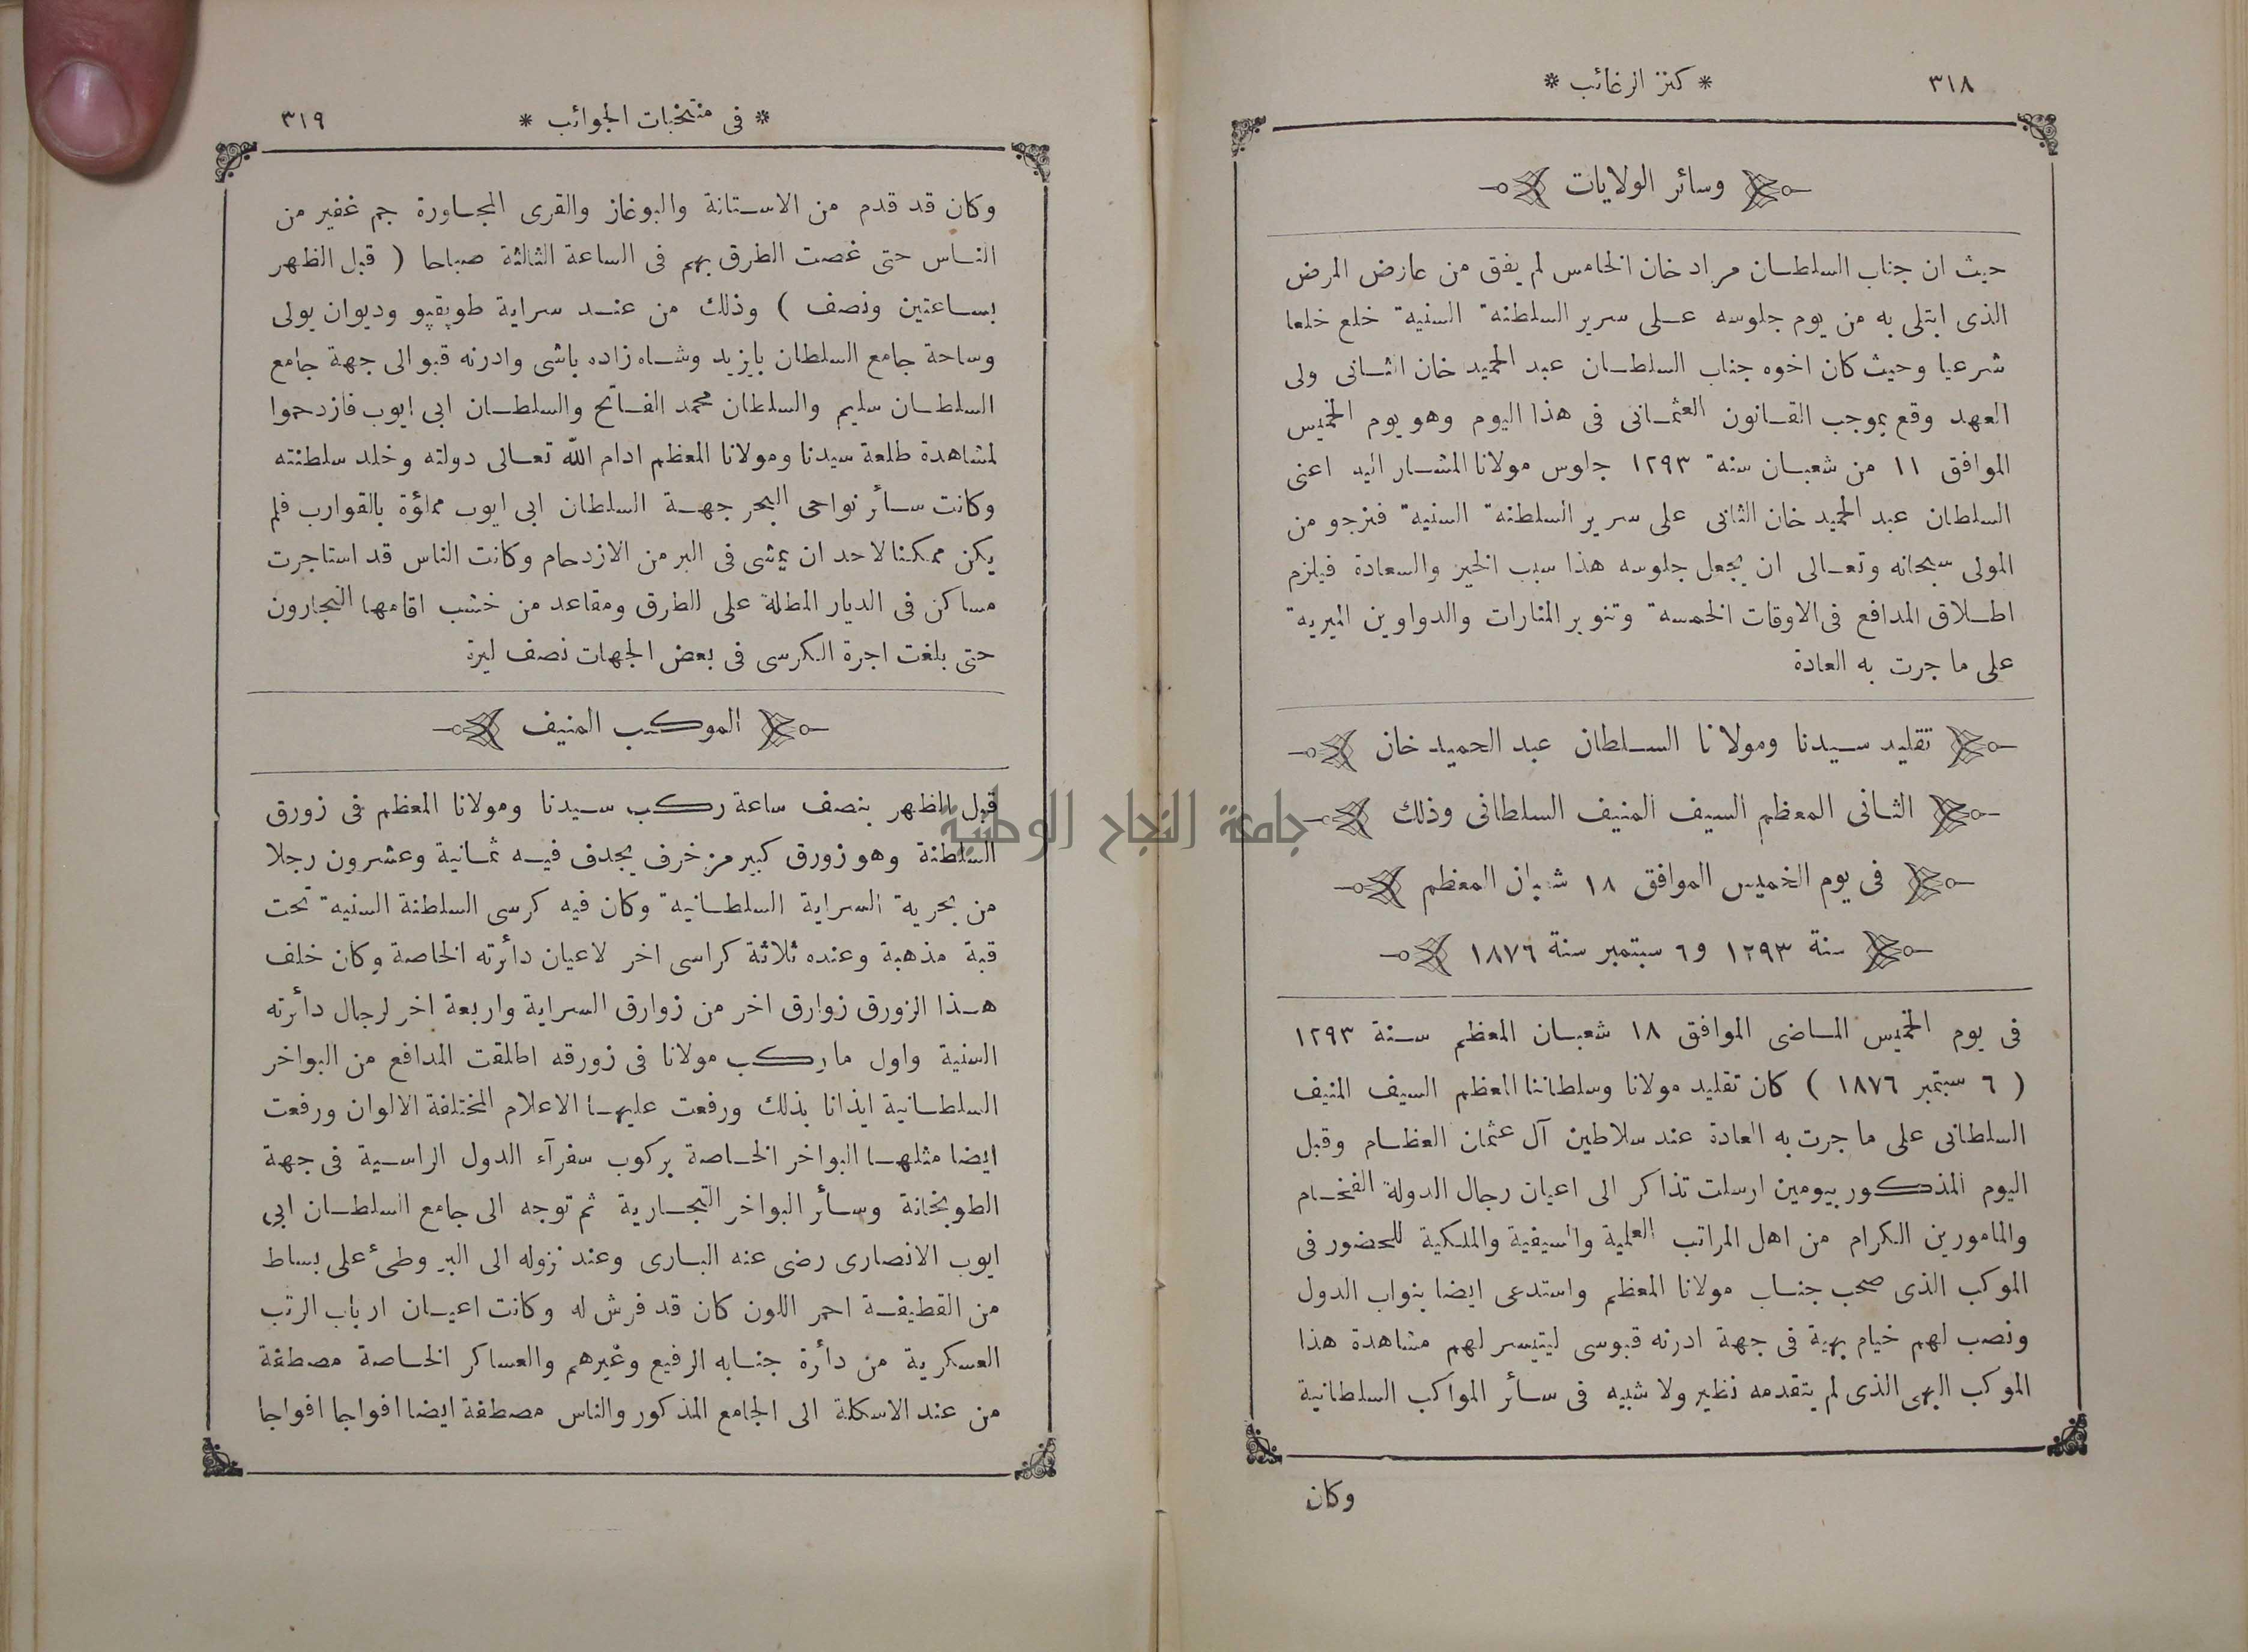 ٣١٨
* كنز الرغائب *
وسائر الولايات
حيث ان جناب السلطان مراد خان الخامس لم يفق من عارض المرض
الذى ابتلى به من يوم جلوسه على سرير السلطنة السنية خلع خلعا
شرعيا وحيث كان اخوه جناب السلطان عبد الحميد خان الثانى ولى
العهد وقع بموجب القانون العثمانى فى هذا اليوم وهو يوم الخميس
الموافق ١١ من شعبان سنة ١٢٩٣ جلوس مولانا المشار اليه اعنى
السلطان عبد الحميد خان الثانى على سرير السلطنة السنية فنرجو من
المولى سبحانه وتعالى ان يجعل جلوسه هذا سبب الخير والسعادة فيلزم
اطلاق المدافع فى الاوقات الخمسة وتنوير المنارات والدواوين الميرية
على ما جرت به العادة
تقليد سيدنا ومولانا السلطان عبد الحميد خان
الثانى المعظم السيف المنيف السلطانى وذلك
فى يوم الخميس الموافق ١٨ شعبان المعظم
سنة ١٢٩٣ و٦ سبتمبر سنة ١٨٧٦
فى يوم الخميس الماضى الموافق ١٨ شعبان المعظم سنة ١٢٩٣
( ٦ سبتمبر ١٨٧٦ ) كان تقليد مولانا وسلطاننا المعظم السيف المنيف
السلطانى على ما جرت به العادة عند سلاطين آل عثمان العظام وقبل
اليوم المذكور بيومين ارسلت تذاكر الى اعيان رجال الدولة الفخام
والمامورين الكرام من اهل المراتب العلمية والسيفية والملكية للحضور فى
الموكب الذى صحب جناب مولانا المعظم واستدعى ايضا بنواب الدول
ونصب لهم خيام بهية فى جهة ادرنه قبوسى ليتيسر لهم مشاهدة هذا
الموكب البهى الذى لم يتقدمه نظير ولا شبيه فى سائر المواكب السلطانية
وكان
* فى منتخبات الجوائب *
٣١٩
وكان قد قدم من الاستانة والبوغاز والقرى المجاورة جم غفير من
الناس حتى غصت الطرق بهم فى الساعة الثالثة صباحا ( قبل الظهر
بساعتين ونصف ) وذلك من عند سراية طوپقپو وديوان يولى
وساحة جامع السلطان بايزيد وشاه زاده باشى وادرنه قبو الى جهة جامع
السلطان سليم والسلطان محمد الفاتح والسلطان ابى ايوب فازدحموا
لمشاهدة طلعة سيدنا ومولانا المعظم ادام الله تعالى دولته وخلد سلطنته
وكانت سائر نواحى البحر جهة السلطان ابى ايوب مملؤة بالقوارب فلم
يكن ممكنا لاحد ان يمشى فى البر من الازدحام وكانت الناس قد استاجرت
مساكن فى الديار المطلة على الطرق ومقاعد من خشب اقامها النجارون
حتى بلغت اجرة الكرسى فى بعض الجهات نصف ليرة
الموكب المنيف
قبل الظهر بنصف ساعة ركب سيدنا ومولانا المعظم فى زورق
السلطنة وهو زورق كبير مزخرف يجدف فيه ثمانية وعشرون رجلا
من بحرية السراية السلطانية وكان فيه كرسى السلطنة السنية تحت
قبة مذهبة وعنده ثلاثة كراسى اخر لاعيان دائرته الخاصة وكان خلف
هذا الزورق زوارق اخر من زوارق السراية واربعة اخر لرجال دائرته
السنية واول ما ركب مولانا فى زورقه اطلقت المدافع من البواخر
السلطانية ايذانا بذلك ورفعت عليها الاعلام المختلفة الالوان ورفعت
ايضا مثلها البواخر الخاصة بركوب سفرآء الدول الراسية فى جهة
الطوبخانة وسائر البواخر التجارية ثم توجه الى جامع السلطان ابى
ايوب الانصارى رضى عنه البارى وعند نزوله الى البر وطئ على بساط
من القطيفة احمر اللون كان قد فرش له وكانت اعيان ارباب الرتب
العسكرية من دائرة جنابه الرفيع وغيرهم والعساكر الخاصة مصطفة
من عند الاسكلة الى الجامع المذكور والناس مصطفة ايضا افواجا افواجا
جامعة النجاح الوطنية